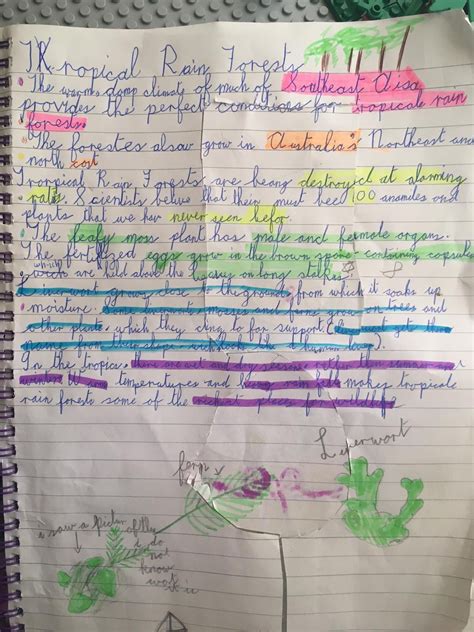 Tropical Rain Forests
• The warm damp climate of much of Southeast Aisa
provides the perfect conditions for tropicale rain
forests.
• The forestes alsow grow in Australia's Northeast and
north cost
Tropical Rain Forests are being destroyed at alarming
rate. Scientists belive that their must bee 100 and
plants that we hav never seen befor.
• The leafy moss plant has male and female organs.
The fertilized eggs grow in the brown spore-containing capsules
which are held above the on long stalks
Liverwort grows close to the ground from which it soaks up
moisture. and mosses and ferns grow on trees and
other plants which they cling to for support. (Liverwort get their
name from their shape wich look like a human liver).
In the tropics there are wet and dry seasons rather then summer and
winter temperatures and rain makes tropicale
rain forests some of the richest places for wildlife
Liverwort
fern
i saw a of this
i do
not
know
wot
it is